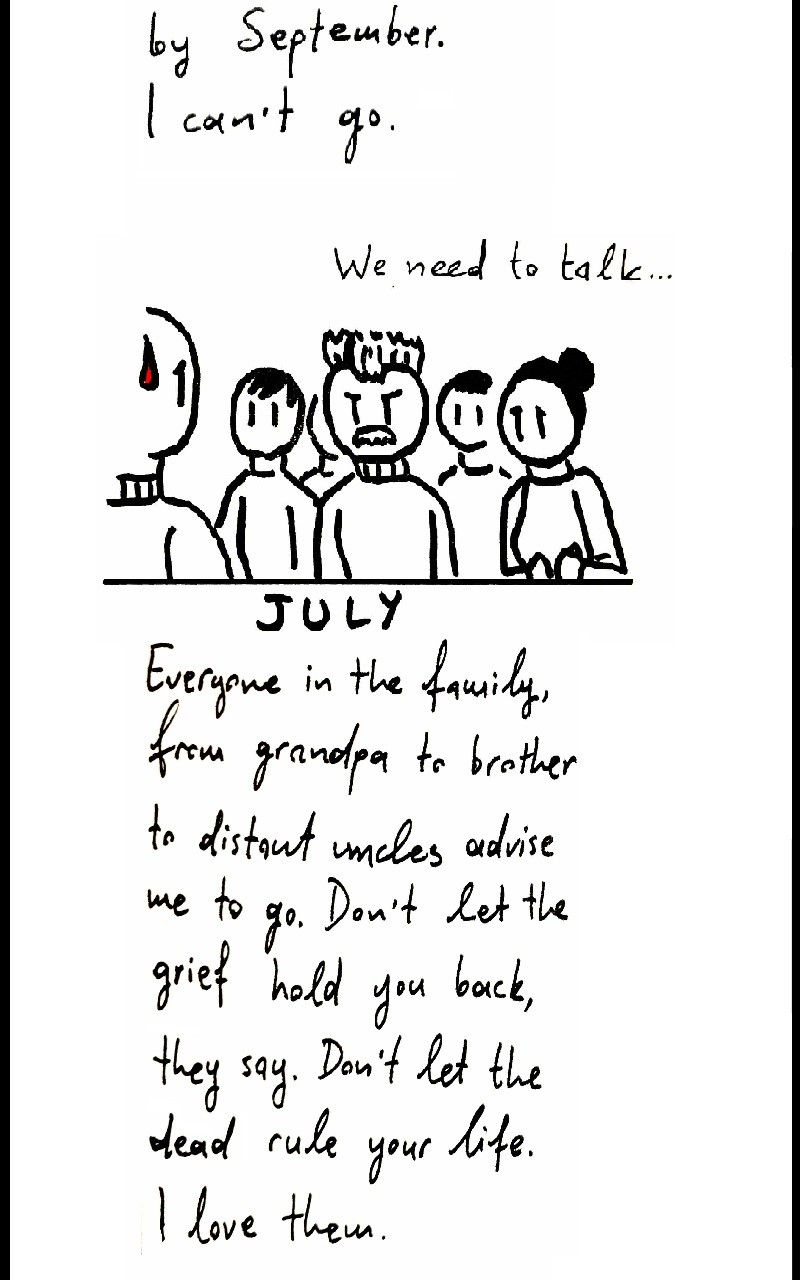 by September.
I can't go.
We need to talk...
JULY
Everyone in the family,
from grandpa to brother
to distant uncles advise
me to go. Don't let the
grief hold you back,
they say. Don't let the
dead rule your life.
I love them.